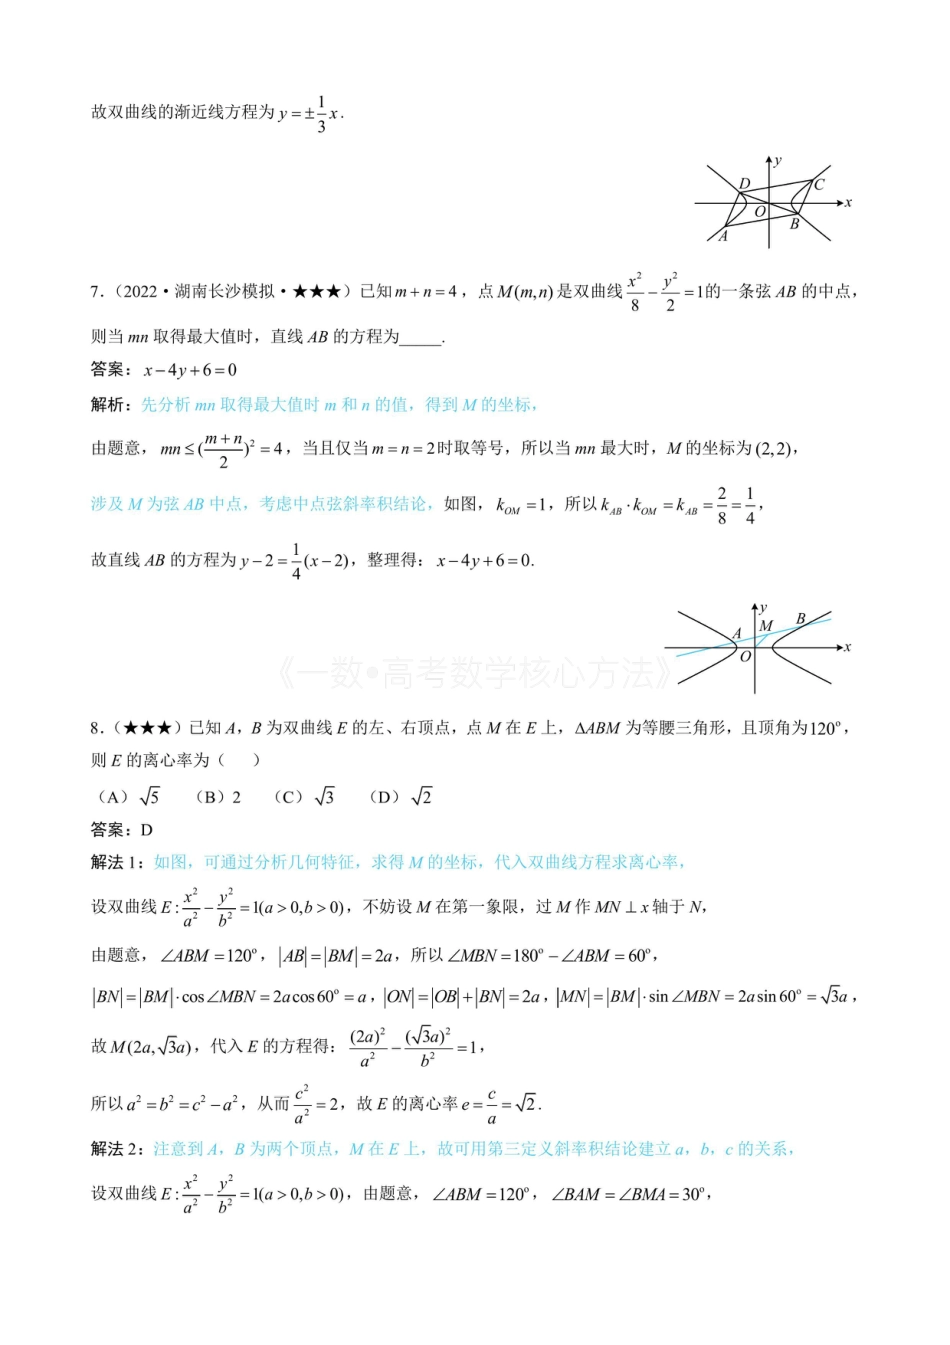 故双曲线的渐近线方程为 y=±1/3x.
y
D
C
O
x
A
B
7.（2022·湖南长沙模拟·★★★）已知 m+n=4，点 M(m,n) 是双曲线 x²/8−y²/2=1的一条弦 AB 的中点，
则当 mn 取得最大值时，直线 AB 的方程为_____.
答案：x−4y+6=0
解析：先分析 mn 取得最大值时 m 和 n 的值，得到 M 的坐标，
由题意，mn≤((m+n)/2)²=4，当且仅当 m=n=2时取等号，所以当 mn 最大时，M 的坐标为 (2,2)，
涉及 M 为弦 AB 中点，考虑中点弦斜率积结论，如图，k_OM=1，所以 k_AB·k_OM=k_AB=2/8=1/4，
故直线 AB 的方程为 y−2=1/4(x−2)，整理得：x−4y+6=0.
y
A
M
B
O
x
《一数•高考数学核心方法》
8.（★★★）已知 A，B 为双曲线 E 的左、右顶点，点 M 在 E 上，ΔABM 为等腰三角形，且顶角为120°，
则 E 的离心率为（　　）
（A）√5　（B）2　（C）√3　（D）√2
答案：D
解法 1：如图，可通过分析几何特征，求得 M 的坐标，代入双曲线方程求离心率，
设双曲线 E:x²/a²−y²/b²=1(a>0,b>0)，不妨设 M 在第一象限，过 M 作 MN⊥x 轴于 N，
由题意，∠ABM=120°，|AB|=|BM|=2a，所以 ∠MBN=180°−∠ABM=60°，
|BN|=|BM|·cos∠MBN=2acos60°=a，|ON|=|OB|+|BN|=2a，|MN|=|BM|·sin∠MBN=2asin60°=√3a，
故 M(2a,√3a)，代入 E 的方程得：(2a)²/a²−(√3a)²/b²=1，
所以 a²=b²=c²−a²，从而 c²/a²=2，故 E 的离心率 e=c/a=√2.
解法 2：注意到 A，B 为两个顶点，M 在 E 上，故可用第三定义斜率积结论建立 a，b，c 的关系，
设双曲线 E:x²/a²−y²/b²=1(a>0,b>0)，由题意，∠ABM=120°，∠BAM=∠BMA=30°，